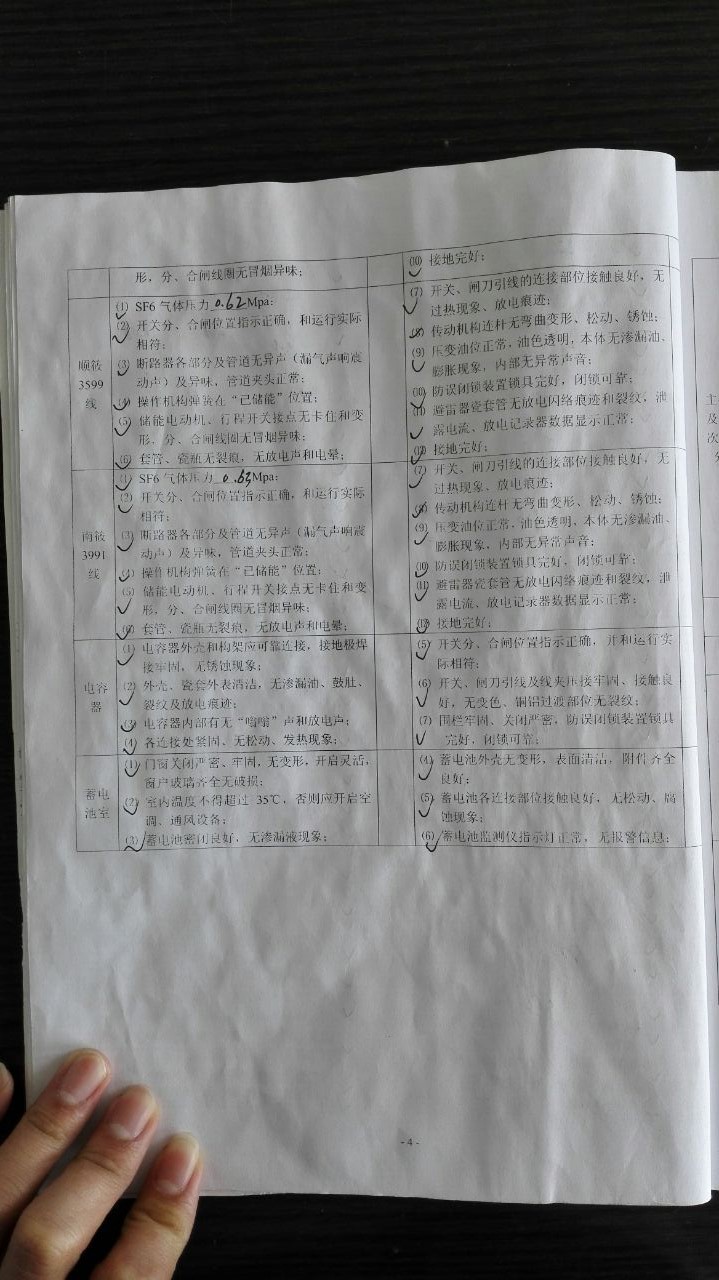 形，分、合闸线圈无冒烟异味；
⑽ 接地完好；
3599
线
⑴ SF6 气体压力 0.62Mpa：
⑵ 开关分、合闸位置指示正确，和运行实际
相符；
⑶ 断路器各部分及管道无异声（漏气声响震
动声）及异味，管道夹头正常；
⑷ 操作机构弹簧在“已储能”位置；
⑸ 储能电动机、行程开关接点无卡住和变
形，分、合闸线圈无冒烟异味；
⑹ 套管、瓷瓶无裂痕，无放电声和电晕；
⑺ 开关、闸刀引线的连接部位接触良好，无
过热现象、放电痕迹；
⑻ 传动机构连杆无弯曲变形、松动、锈蚀；
⑼ 压变油位正常，油色透明，本体无渗漏油、
膨胀现象，内部无异常声音；
⑽ 防误闭锁装置锁具完好，闭锁可靠；
⑾ 避雷器瓷套管无放电闪络痕迹和裂纹，泄
露电流、放电记录器数据显示正常；
⑿ 接地完好；
3991
线
⑴ SF6 气体压力 0.63Mpa：
⑵ 开关分、合闸位置指示正确，和运行实际
相符；
⑶ 断路器各部分及管道无异声（漏气声响震
动声）及异味，管道夹头正常；
⑷ 操作机构弹簧在“已储能”位置；
⑸ 储能电动机、行程开关接点无卡住和变
形，分、合闸线圈无冒烟异味；
⑹ 套管、瓷瓶无裂痕，无放电声和电晕；
⑺ 开关、闸刀引线的连接部位接触良好，无
过热现象、放电痕迹；
⑻ 传动机构连杆无弯曲变形、松动、锈蚀；
⑼ 压变油位正常，油色透明、本体无渗漏油、
膨胀现象，内部无异常声音；
⑽ 防误闭锁装置锁具完好，闭锁可靠；
⑾ 避雷器瓷套管无放电闪络痕迹和裂纹，泄
露电流、放电记录器数据显示正常；
⑿ 接地完好；
电容
器
⑴ 电容器外壳和构架应可靠连接，接地极焊
接牢固，无锈蚀现象；
⑵ 外壳、瓷套外表清洁，无渗漏油、鼓肚、
裂纹及放电痕迹；
⑶ 电容器内部有无“嗡嗡”声和放电声；
⑷ 各连接处紧固、无松动、发热现象；
⑸ 开关分、合闸位置指示正确，并和运行实
际相符；
⑹ 开关、闸刀引线及线夹压接牢固、接触良
好，无变色、铜铝过渡部位无裂纹；
⑺ 围栏牢固、关闭严密，防误闭锁装置锁具
完好，闭锁可靠；
蓄电
池室
⑴ 门窗关闭严密、牢固，无变形，开启灵活，
窗户玻璃齐全无破损；
⑵ 室内温度不得超过 35℃，否则应开启空
调、通风设备；
⑶ 蓄电池密闭良好，无渗漏液现象；
⑷ 蓄电池外壳无变形，表面清洁，附件齐全
良好；
⑸ 蓄电池各连接部位接触良好，无松动、腐
蚀现象；
⑹ 蓄电池监测仪指示灯正常，无报警信息；
- 4 -
主
及
次